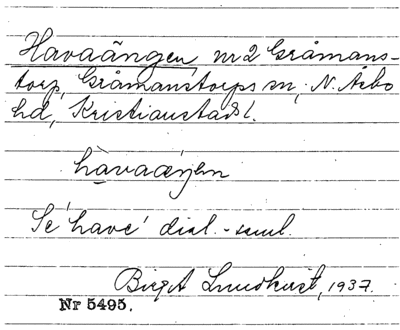 Havaängen nr 2 Gråmans-
torp, Gråmanstorps sn, N. Åsbo
hd, Kristianstads l.
hàvaæŋen
Se 'have' dial.-saml.
Birgit Lundkvist, 1937.
Nr 5495.